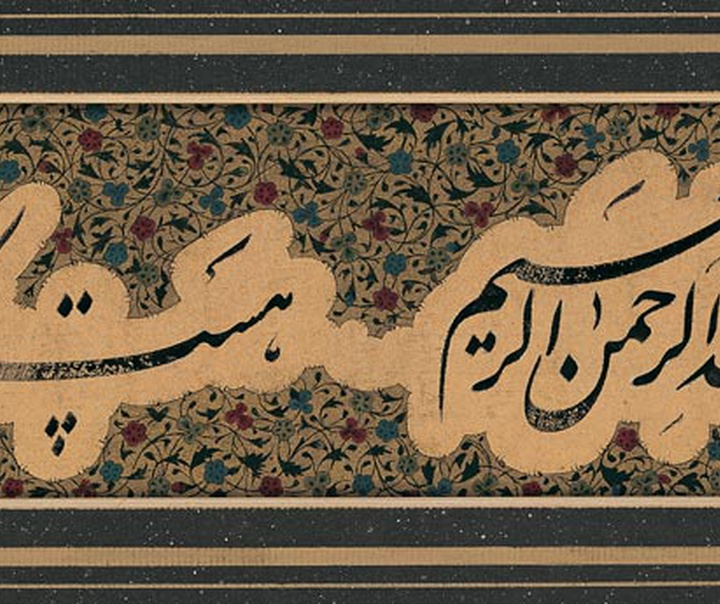 الرحمن الرحیم هست